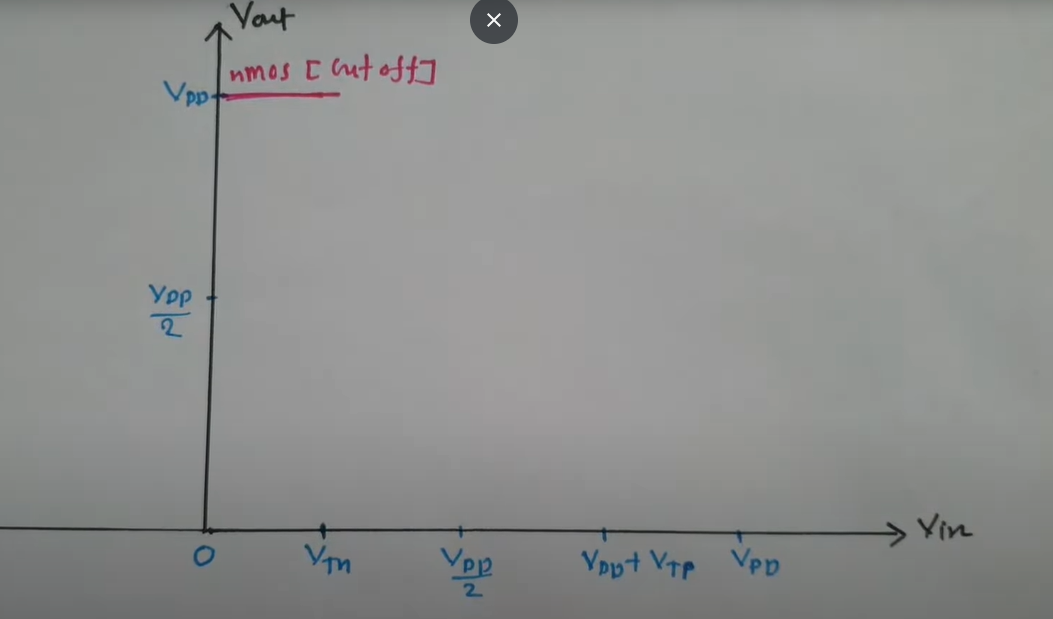 Vout
nmos [cut off]
VDD
VDD
2
0
VTn
VDD
2
VDD + VTP
VDD
Vin